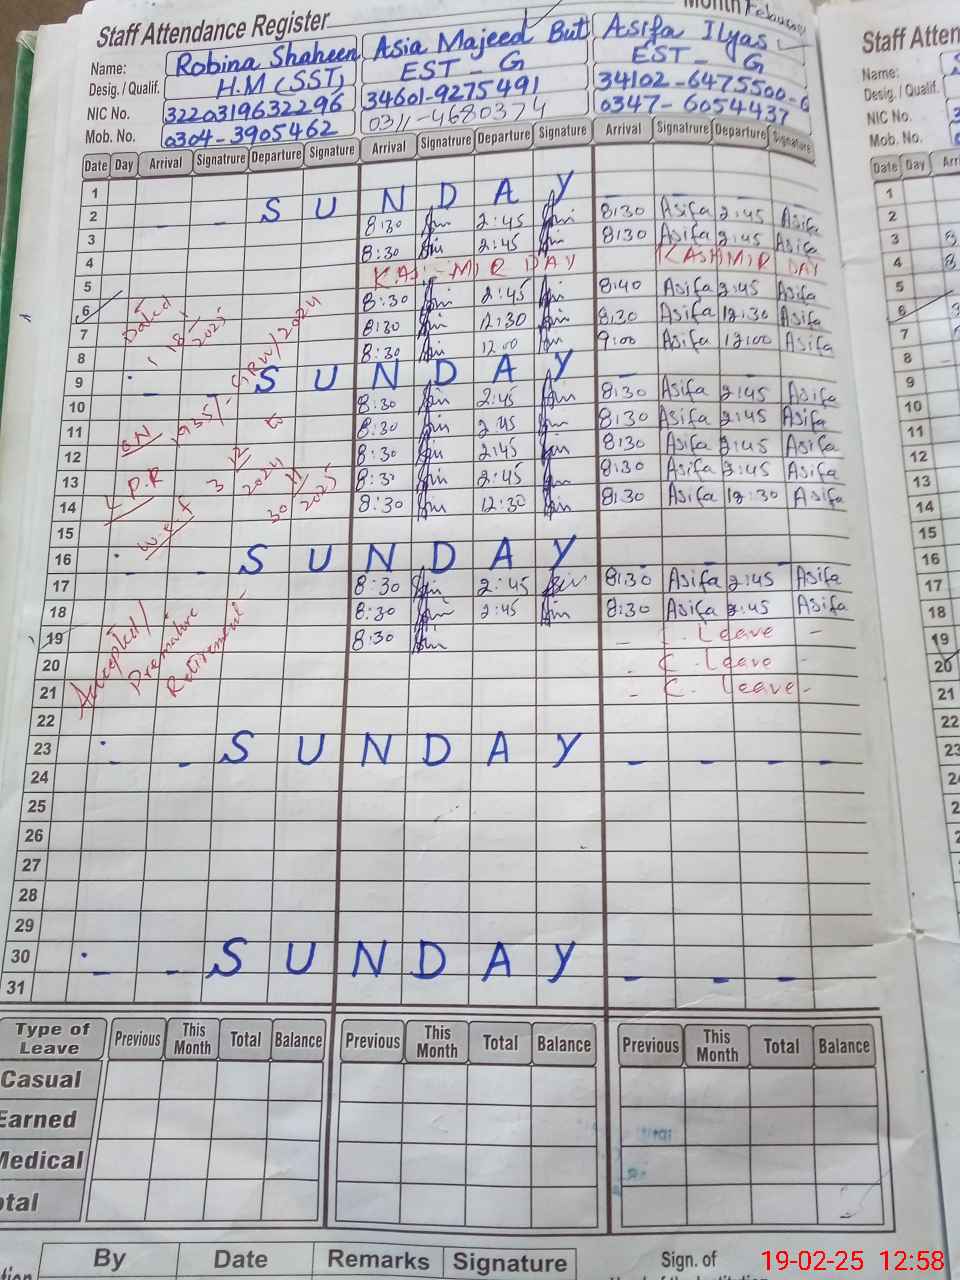 Staff Attendance Register
Month February
Name: Robina Shaheen Asia Majeed Butt Asifa Ilyas
Desig. / Qualif. H.M (SST) EST - G EST - G
NIC No. 3220319632296 34601-9275491 34102-6475500-6
Mob. No. 0304-3905462 0311-4680374 0347-6054437
Date Day Arrival Signatrure Departure Signature Arrival Signatrure Departure Signature Arrival Signatrure Departure Signature
1
2 SUNDAY
3 8:30 2:45 8:30 Asifa 2:45 Asifa
4 8:30 2:45 8:30 Asifa 2:45 Asifa
5 KASHMIR DAY KASHMIR DAY
6 8:30 2:45 8:40 Asifa 2:45 Asifa
7 8:30 12:30 8:30 Asifa 12:30 Asifa
8 8:30 12:00 9:00 Asifa 12:00 Asifa
9 SUNDAY
10 8:30 2:45 8:30 Asifa 2:45 Asifa
11 8:30 2:45 8:30 Asifa 2:45 Asifa
12 8:30 2:45 8:30 Asifa 2:45 Asifa
13 8:30 2:45 8:30 Asifa 2:45 Asifa
14 8:30 12:30 8:30 Asifa 12:30 Asifa
15
16 SUNDAY
17 8:30 2:45 8:30 Asifa 2:45 Asifa
18 8:30 2:45 8:30 Asifa 2:45 Asifa
19 8:30 C. Leave
20 C. Leave
21 C. Leave
22
23 SUNDAY
24
25
26
27
28
29
30 SUNDAY
31
Dated
2025
L.P.R
w.e.f
2024
to
30
2025
Accepted /
Premature
Retirement
Type of Leave Previous This Month Total Balance Previous This Month Total Balance Previous This Month Total Balance
Casual
Earned
Medical
otal
By Date Remarks Signature
Sign. of
Staff Atten
Name:
Desig. / Qualif.
NIC No. 3
Mob. No.
Date Day Arri
1
2
3 8
4 8
5
6
7
8
9
10
11
12
13
14
15
16
17
18
19
20
21
22
23
19-02-25 12:58